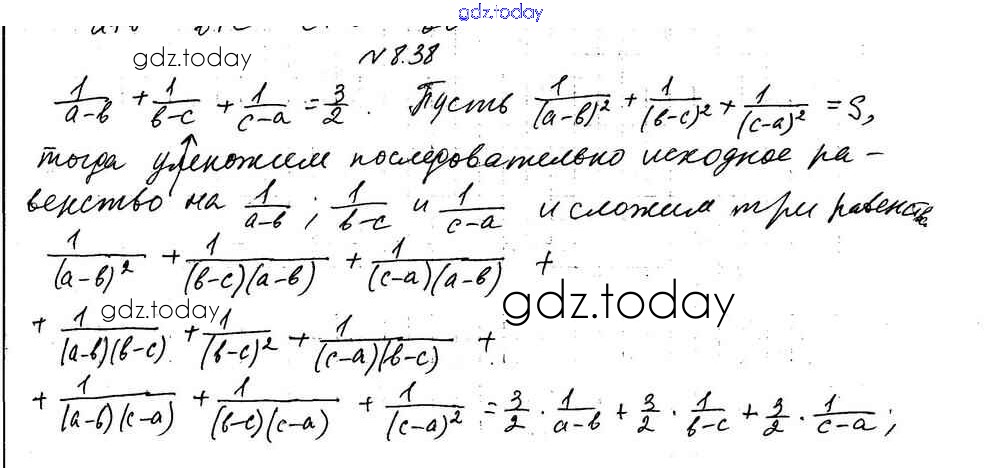 gdz.today
gdz.today
N 8.38
1/(a-b) + 1/(b-c) + 1/(c-a) = 3/2. Пусть 1/(a-b)² + 1/(b-c)² + 1/(c-a)² = S,
тогда умножим последовательно исходное ра-
венство на 1/(a-b); 1/(b-c) и 1/(c-a) и сложим три равенства
1/(a-b)² + 1/((b-c)(a-b)) + 1/((c-a)(a-b)) +
gdz.today
gdz.today
+ 1/((a-b)(b-c)) + 1/(b-c)² + 1/((c-a)(b-c)) +
+ 1/((a-b)(c-a)) + 1/((b-c)(c-a)) + 1/(c-a)² = 3/2 · 1/(a-b) + 3/2 · 1/(b-c) + 3/2 · 1/(c-a);